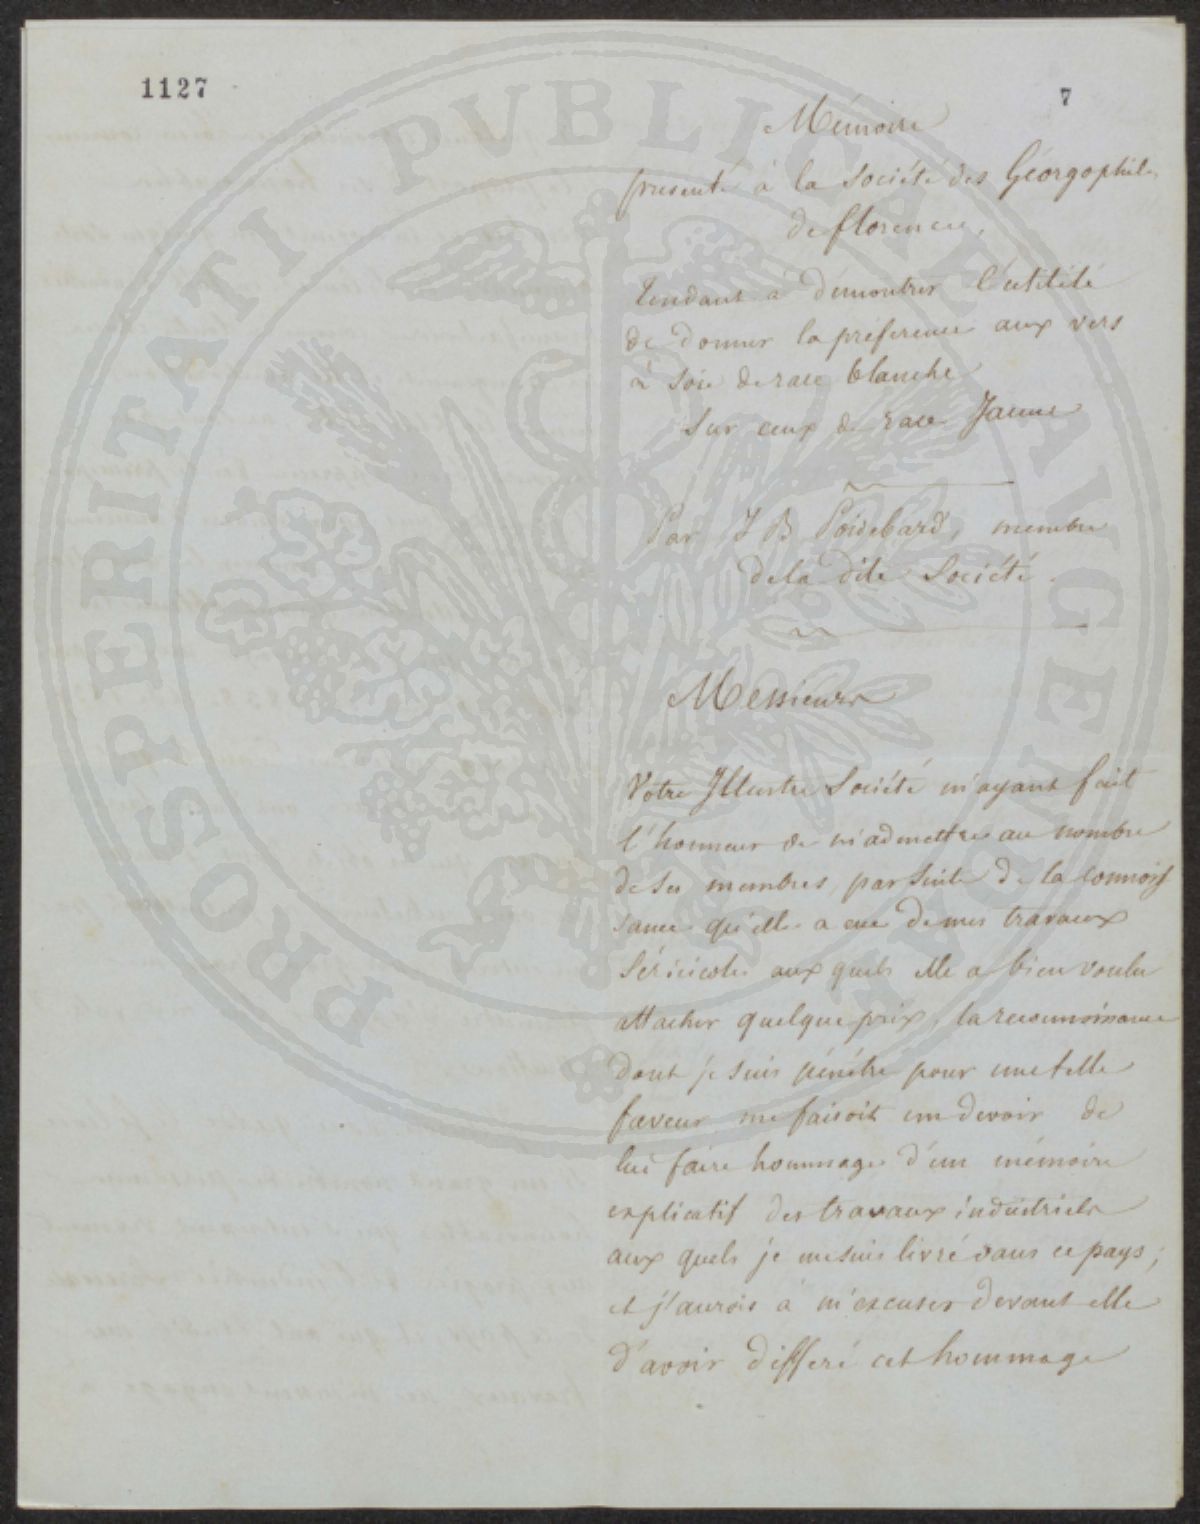 1127
7
Mémoire
presenté à la Société des Géorgophiles
de florence,
tendant à démontrer l'utilité
de donner la préference aux vers
à soie de race blanche
sur ceux de race Jaune
Par J B Poidebard, membre
de la dite Société.
Messieurs
Votre Illustre Société m'ayant fait
l'honneur de m'admettre au nombre
de ses membres, par suite de la connois
sance qu'elle a eue de mes travaux
séricicoles aux quels elle a bien voulu
attacher quelque prix, la reconnoissance
dont je suis pénétré pour une telle
faveur me faisoit un devoir de
lui faire hommage d'un mémoire
explicatif des travaux industriels
aux quels je me suis livré dans ce pays;
et j'aurois à m'excuser devant elle
d'avoir differé cet hommage
PROSPERITATI PUBLICAE AUGENDAE